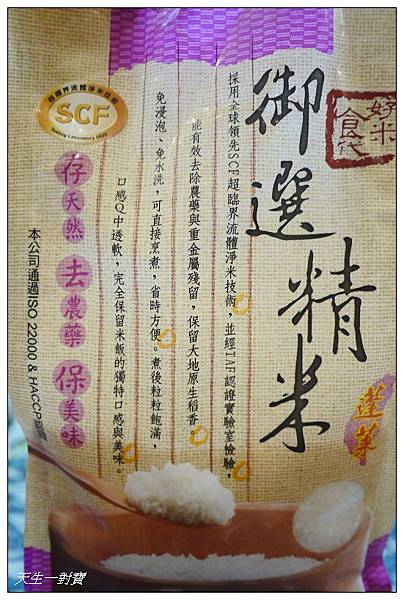 好米食代
御選精米
蓬萊
採用全球領先SCF超臨界流體淨米技術，並經TAF認證實驗室檢驗，
能有效去除農藥與重金屬殘留，保留大地原生稻香。
免浸泡、免水洗，可直接烹煮，省時方便。煮後粒粒飽滿，
口感Q中透軟，完全保留米飯的獨特口感與美味。
超臨界流體淨米技術
SCF
Testing Laboratory
存天然 去農藥 保美味
本公司通過ISO 22000 & HACCP認證
天生一對寶